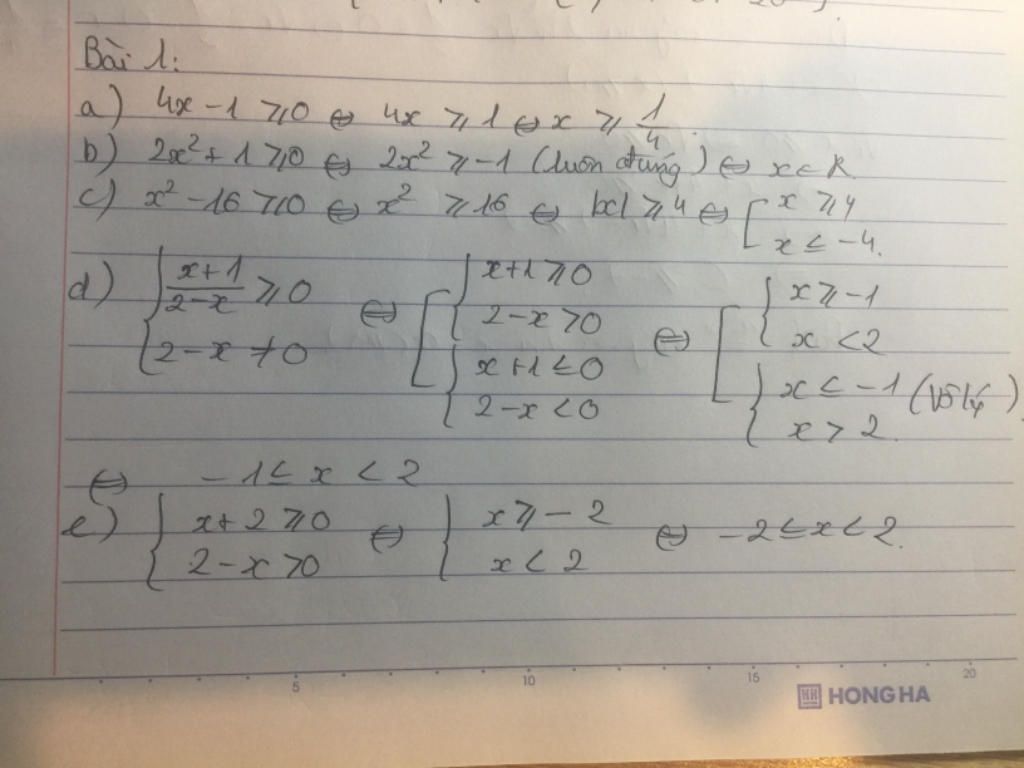 Bài 1:
a) 4x - 1 ⩾ 0 ⇔ 4x ⩾ 1 ⇔ x ⩾ 1/4.
b) 2x² + 1 ⩾ 0 ⇔ 2x² ⩾ -1 (luôn đúng) ⇔ x ∈ R.
c) x² - 16 ⩾ 0 ⇔ x² ⩾ 16 ⇔ |x| ⩾ 4 ⇔ [ x ⩾ 4
x ≤ -4.
d) { (x+1)/(2-x) ⩾ 0 ⇔ [ { x+1 ⩾ 0 ⇔ [ { x ⩾ -1
2-x ≠ 0 2-x > 0 x < 2
{ x+1 ≤ 0 { x ≤ -1 (Vô lý)
2-x < 0 x > 2.
⇔ -1 ≤ x < 2
e) { x+2 ⩾ 0 ⇔ { x ⩾ -2 ⇔ -2 ≤ x < 2.
2-x > 0 x < 2
5 10 15 20
HH HONG HA